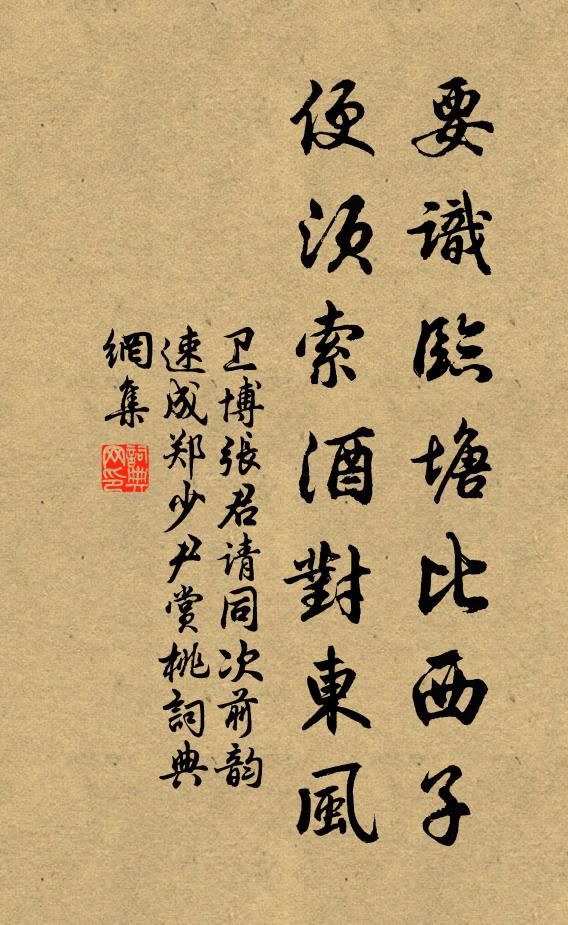 要識臨塘比西子
便須索酒對東風
卫博張君请同次前韵
速成郑少尹赏桃詞典
網集
詞典
网印